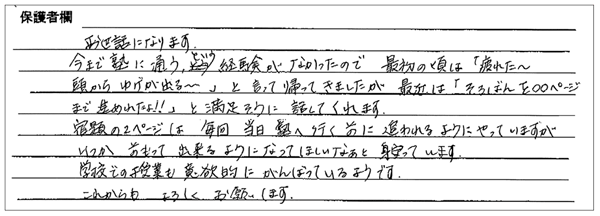 保護者欄
お世話になります。
今まで塾に通う、という経験がなかったので 最初の頃は「疲れた〜
頭から ゆげが出る〜」と 言って帰ってきましたが 最近は「そろばんを〇〇ページ
まで進めれたよ!!」と満足そうに 話してくれます。
宿題の2ページは 毎回 当日 塾へ行く前に 追われるようにやっていますが
いつか 前もって 出来るようになってほしいなぁと 見守っています。
学校での授業も 意欲的に がんばっているようです。
これからも よろしく お願いします。